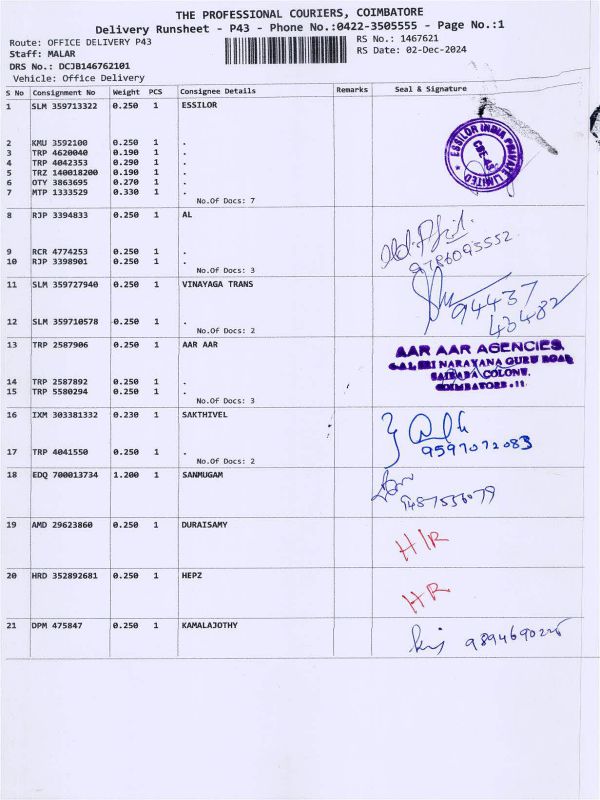 THE PROFESSIONAL COURIERS, COIMBATORE
Delivery Runsheet - P43 - Phone No.:0422-3505555 - Page No.:1
Route: OFFICE DELIVERY P43
RS No.: 1467621
Staff: MALAR
RS Date: 02-Dec-2024
DRS No.: DCJB146762101
Vehicle: Office Delivery
S No Consignment No Weight PCS Consignee Details Remarks Seal & Signature
1 SLM 359713322 0.250 1 ESSILOR
2 KMU 3592100 0.250 1 .
3 TRP 4620040 0.190 1 .
4 TRP 4042353 0.290 1 .
5 TRZ 140018200 0.190 1 .
6 OTY 3863695 0.270 1 .
7 MTP 1333529 0.330 1 .
No.Of Docs: 7
ESSILOR INDIA PRIVATE LIMITED
CBE-45
8 RJP 3394833 0.250 1 AL
9 RCR 4774253 0.250 1 .
10 RJP 3398901 0.250 1 .
No.Of Docs: 3
9786095552
11 SLM 359727940 0.250 1 VINAYAGA TRANS
94437
43482
12 SLM 359710578 0.250 1 .
No.Of Docs: 2
13 TRP 2587906 0.250 1 AAR AAR
AAR AAR AGENCIES,
SRI NARAYANA GURU ROAD
SAIBABA COLONY,
COIMBATORE - 11
14 TRP 2587892 0.250 1 .
15 TRP 5580294 0.250 1 .
No.Of Docs: 3
16 IXM 303381332 0.230 1 SAKTHIVEL
9597072083
17 TRP 4041550 0.250 1 .
No.Of Docs: 2
18 EDQ 700013734 1.200 1 SANMUGAM
9487536079
19 AMD 29623860 0.250 1 DURAISAMY
H/R
20 HRD 352892681 0.250 1 HEPZ
HR
21 DPM 475847 0.250 1 KAMALAJOTHY